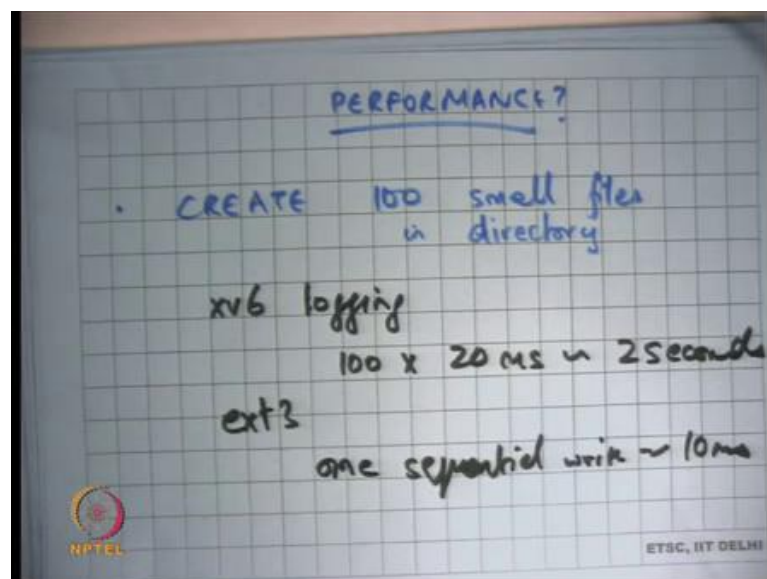 PERFORMANCE?
· CREATE 100 small files
in directory
xv6 logging
100 x 20 ms ~ 2 seconds
ext3
one sequential write ~ 10ms
NPTEL
ETSC, IIT DELHI